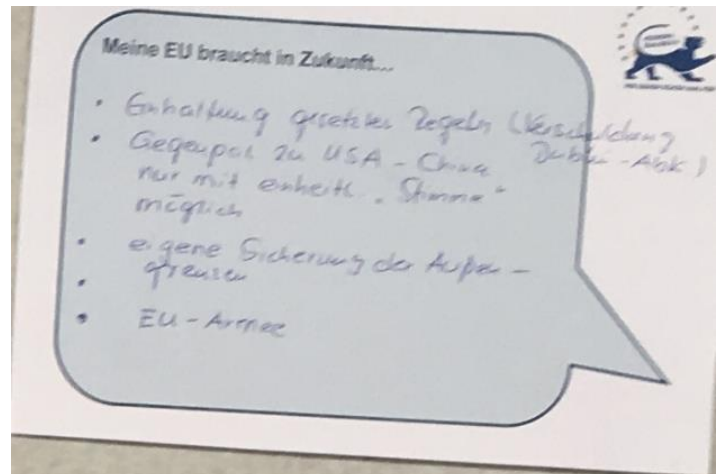 Meine EU braucht in Zukunft...
• Einhaltung gesetzter Regeln (Verschuldung
Dublin-Abk)
• Gegenpol zu USA - China
nur mit einheitl. "Stimme"
möglich
• eigene Sicherung der Außen-
• grenzen
• EU-Armee